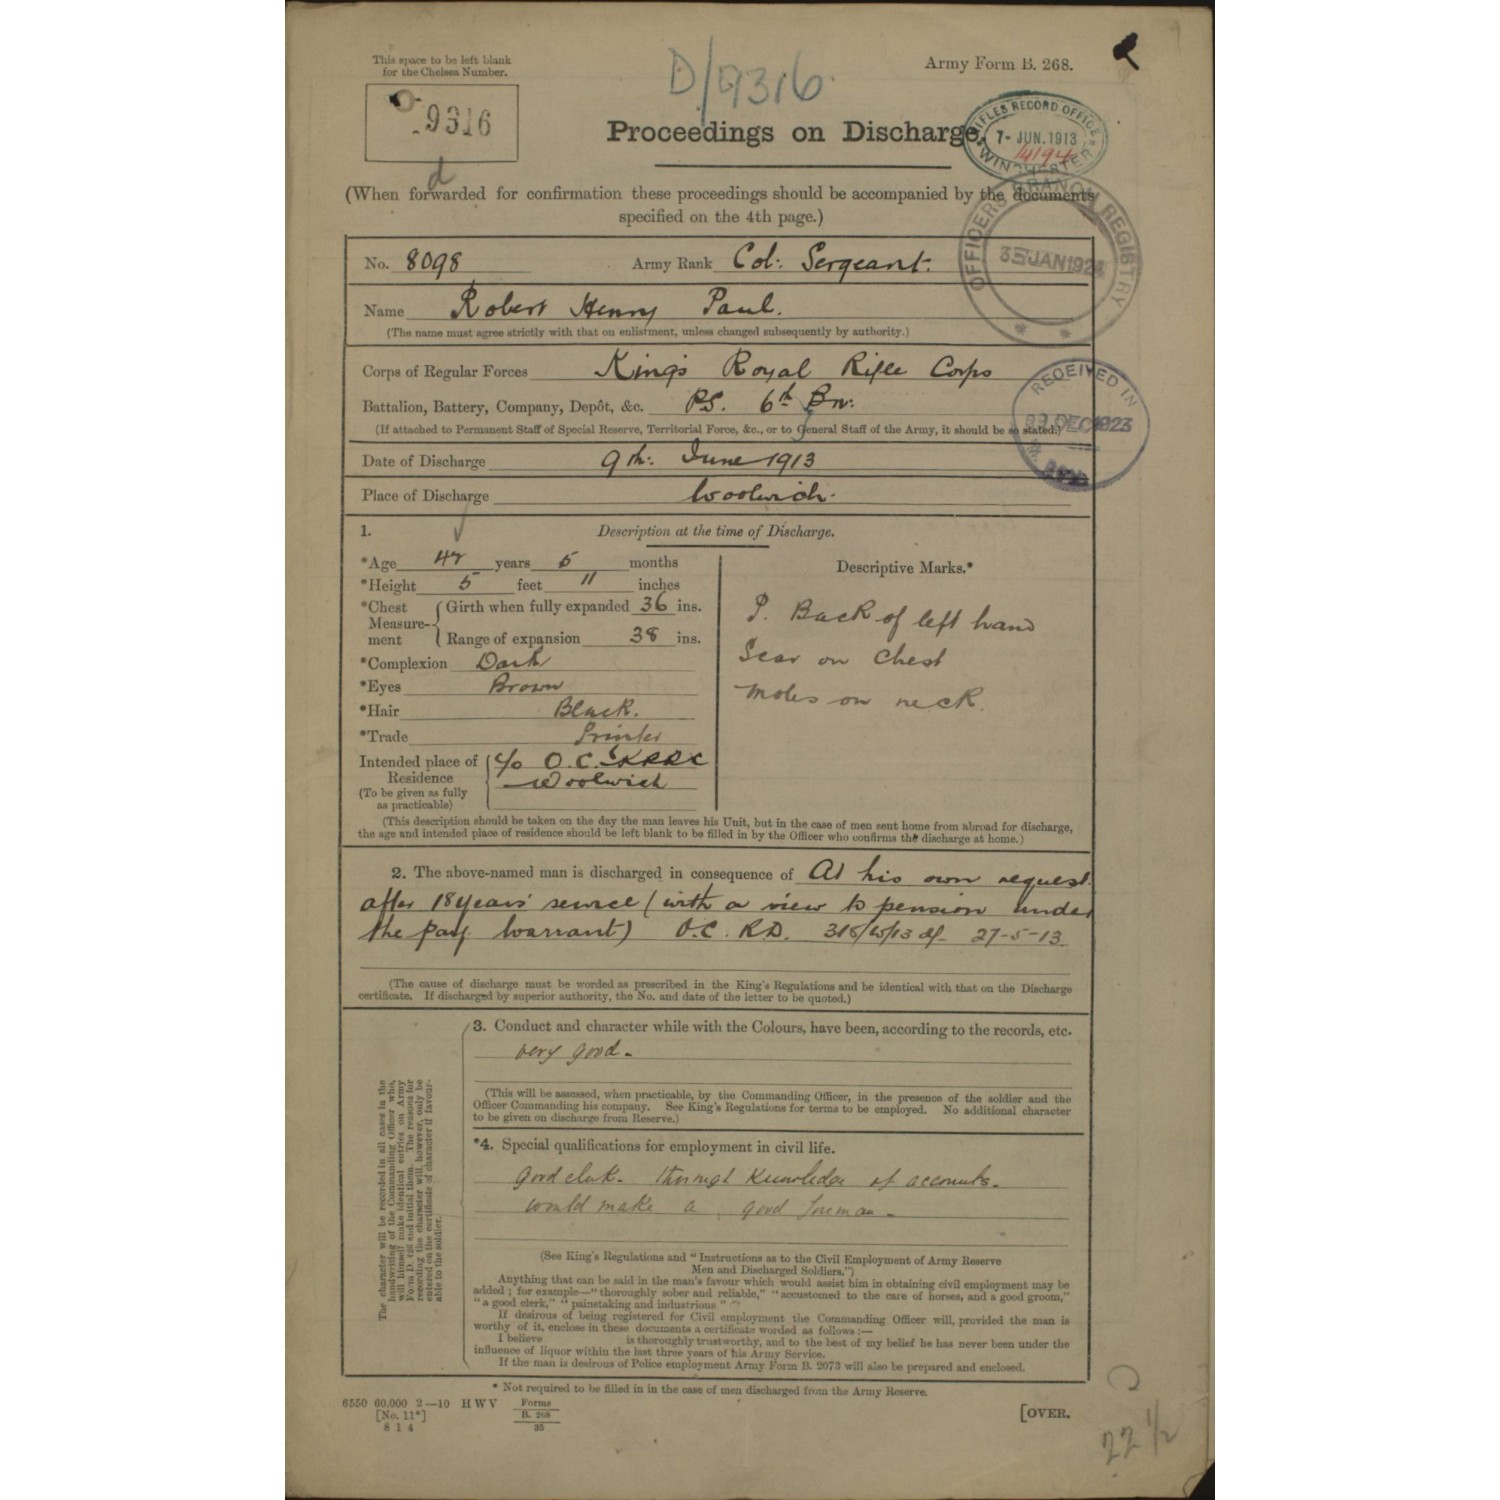 This space to be left blank
for the Chelsea Number.
9316
D/9316
Army Form B. 268.
Proceedings on Discharge.
RIFLES RECORD OFFICE
7- JUN. 1913
14194
WINCHESTER
(When forwarded for confirmation these proceedings should be accompanied by the documents
specified on the 4th page.)
OFFICERS BRANCH REGISTRY
JAN 192
No. 8098 Army Rank Col: Sergeant.
Name Robert Henry Paul.
(The name must agree strictly with that on enlistment, unless changed subsequently by authority.)
Corps of Regular Forces King's Royal Rifle Corps
Battalion, Battery, Company, Depôt, &c. P.S. 6th Bn.
(If attached to Permanent Staff of Special Reserve, Territorial Force, &c., or to General Staff of the Army, it should be so stated.)
RECEIVED IN
DEC 1923
Date of Discharge 9th: June 1913
Place of Discharge Woolwich.
1. Description at the time of Discharge.
*Age years 5 months
*Height 5 feet 11 inches
*Chest Measure-ment Girth when fully expanded 36 ins.
Range of expansion 38 ins.
*Complexion Dark
*Eyes Brown
*Hair Black.
*Trade Printer
Intended place of Residence c/o O.C. 6 KRRC
Woolwich
(To be given as fully
as practicable)
Descriptive Marks.*
P. Back of left hand
Scar on Chest
Moles on neck.
(This description should be taken on the day the man leaves his Unit, but in the case of men sent home from abroad for discharge,
the age and intended place of residence should be left blank to be filled in by the Officer who confirms the discharge at home.)
2. The above-named man is discharged in consequence of At his own request
after 18 years' service (with a view to pension under
the pay Warrant) O.C. R.D. 318/W/13 df 27-5-13
(The cause of discharge must be worded as prescribed in the King's Regulations and be identical with that on the Discharge
certificate. If discharged by superior authority, the No. and date of the letter to be quoted.)
The character will be recorded in all cases in the
handwriting of the Commanding Officer who,
will himself make identical entries on Army
Form D. 426 and initial them. The reasons for
recording the character will, however, only be
entered on the certificate of character if favour-
able to the soldier.
3. Conduct and character while with the Colours, have been, according to the records, etc.
very good.
(This will be assessed, when practicable, by the Commanding Officer, in the presence of the soldier and the
Officer Commanding his company. See King's Regulations for terms to be employed. No additional character
to be given on discharge from Reserve.)
*4. Special qualifications for employment in civil life.
Good clerk. Through knowledge of accounts.
would make a good foreman.
(See King's Regulations and "Instructions as to the Civil Employment of Army Reserve
Men and Discharged Soldiers.")
Anything that can be said in the man's favour which would assist him in obtaining civil employment may be
added; for example—"thoroughly sober and reliable," "accustomed to the care of horses, and a good groom,"
"a good clerk," "painstaking and industrious"
If desirous of being registered for Civil employment the Commanding Officer will, provided the man is
worthy of it, enclose in these documents a certificate worded as follows:—
I believe is thoroughly trustworthy, and to the best of my belief he has never been under the
influence of liquor within the last three years of his Army Service.
If the man is desirous of Police employment Army Form B. 2073 will also be prepared and enclosed.
* Not required to be filled in in the case of men discharged from the Army Reserve.
6550 60,000 2—10 H W V Forms
B. 268
35
[No. 11*]
8 1 4
[OVER.
22 1/2